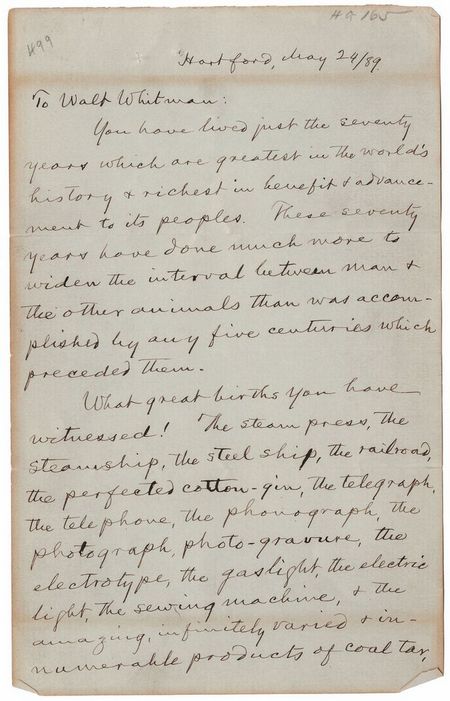 H99
Hartford, May 24/89.
To Walt Whitman:
You have lived just the seventy
years which are greatest in the world's
history & richest in benefit & advance-
ment to its peoples. These seventy
years have done much more to
widen the interval between man &
the other animals than was accom-
plished by any five centuries which
preceded them.
What great births you have
witnessed! The steam press, the
steamship, the steel ship, the railroad,
the perfected cotton-gin, the telegraph,
the telephone, the phonograph, the
photograph, photo-gravure, the
electrotype, the gaslight, the electric
light, the sewing machine, & the
amazing, infinitely varied & in-
numerable products of coal tar,